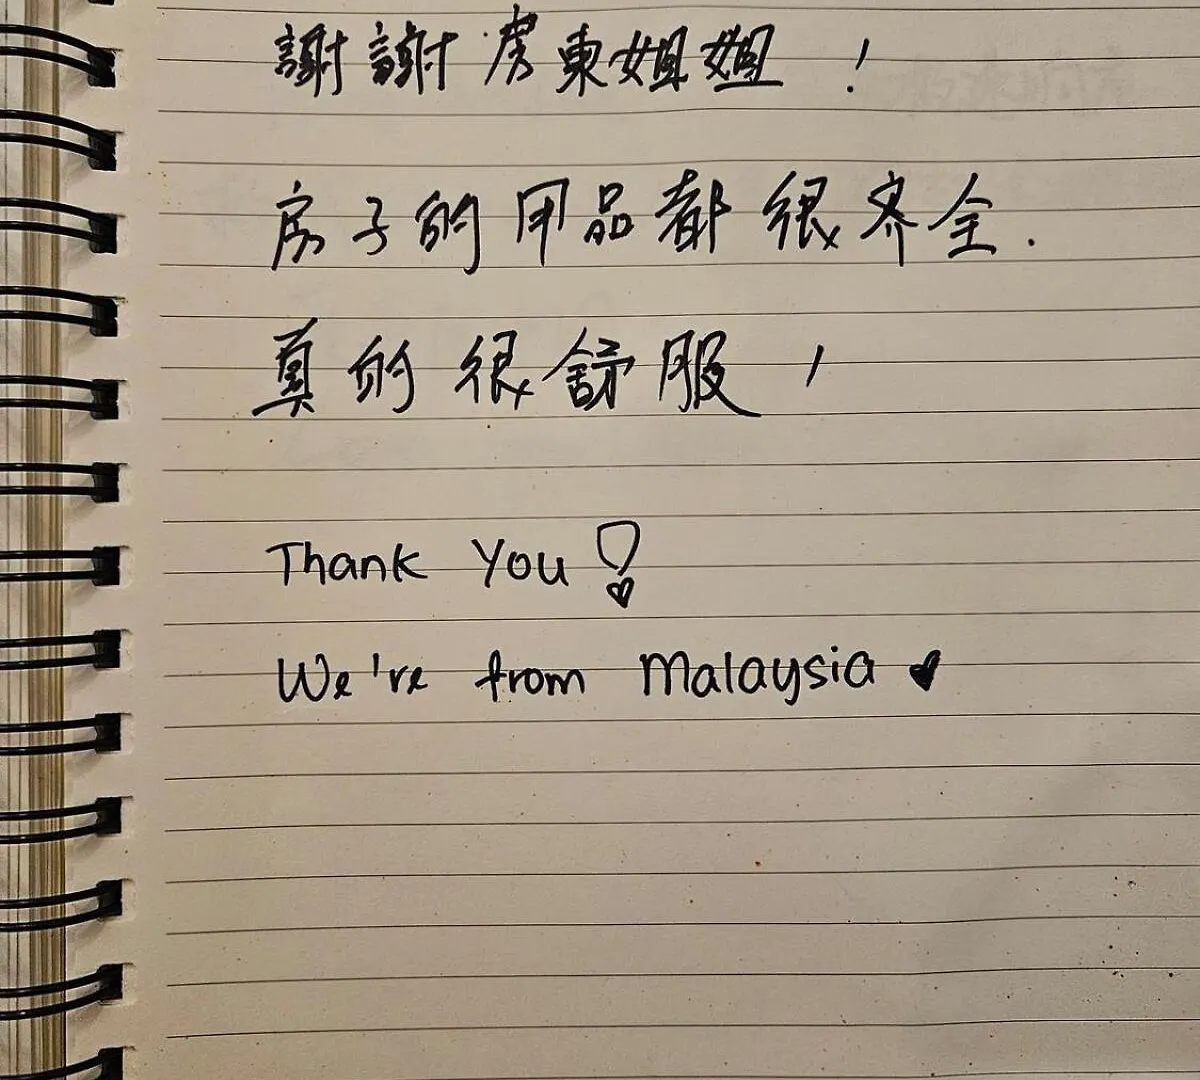 謝謝房東姐姐！
房子的用品都很齐全.
真的很舒服！
Thank You!
We're from Malaysia